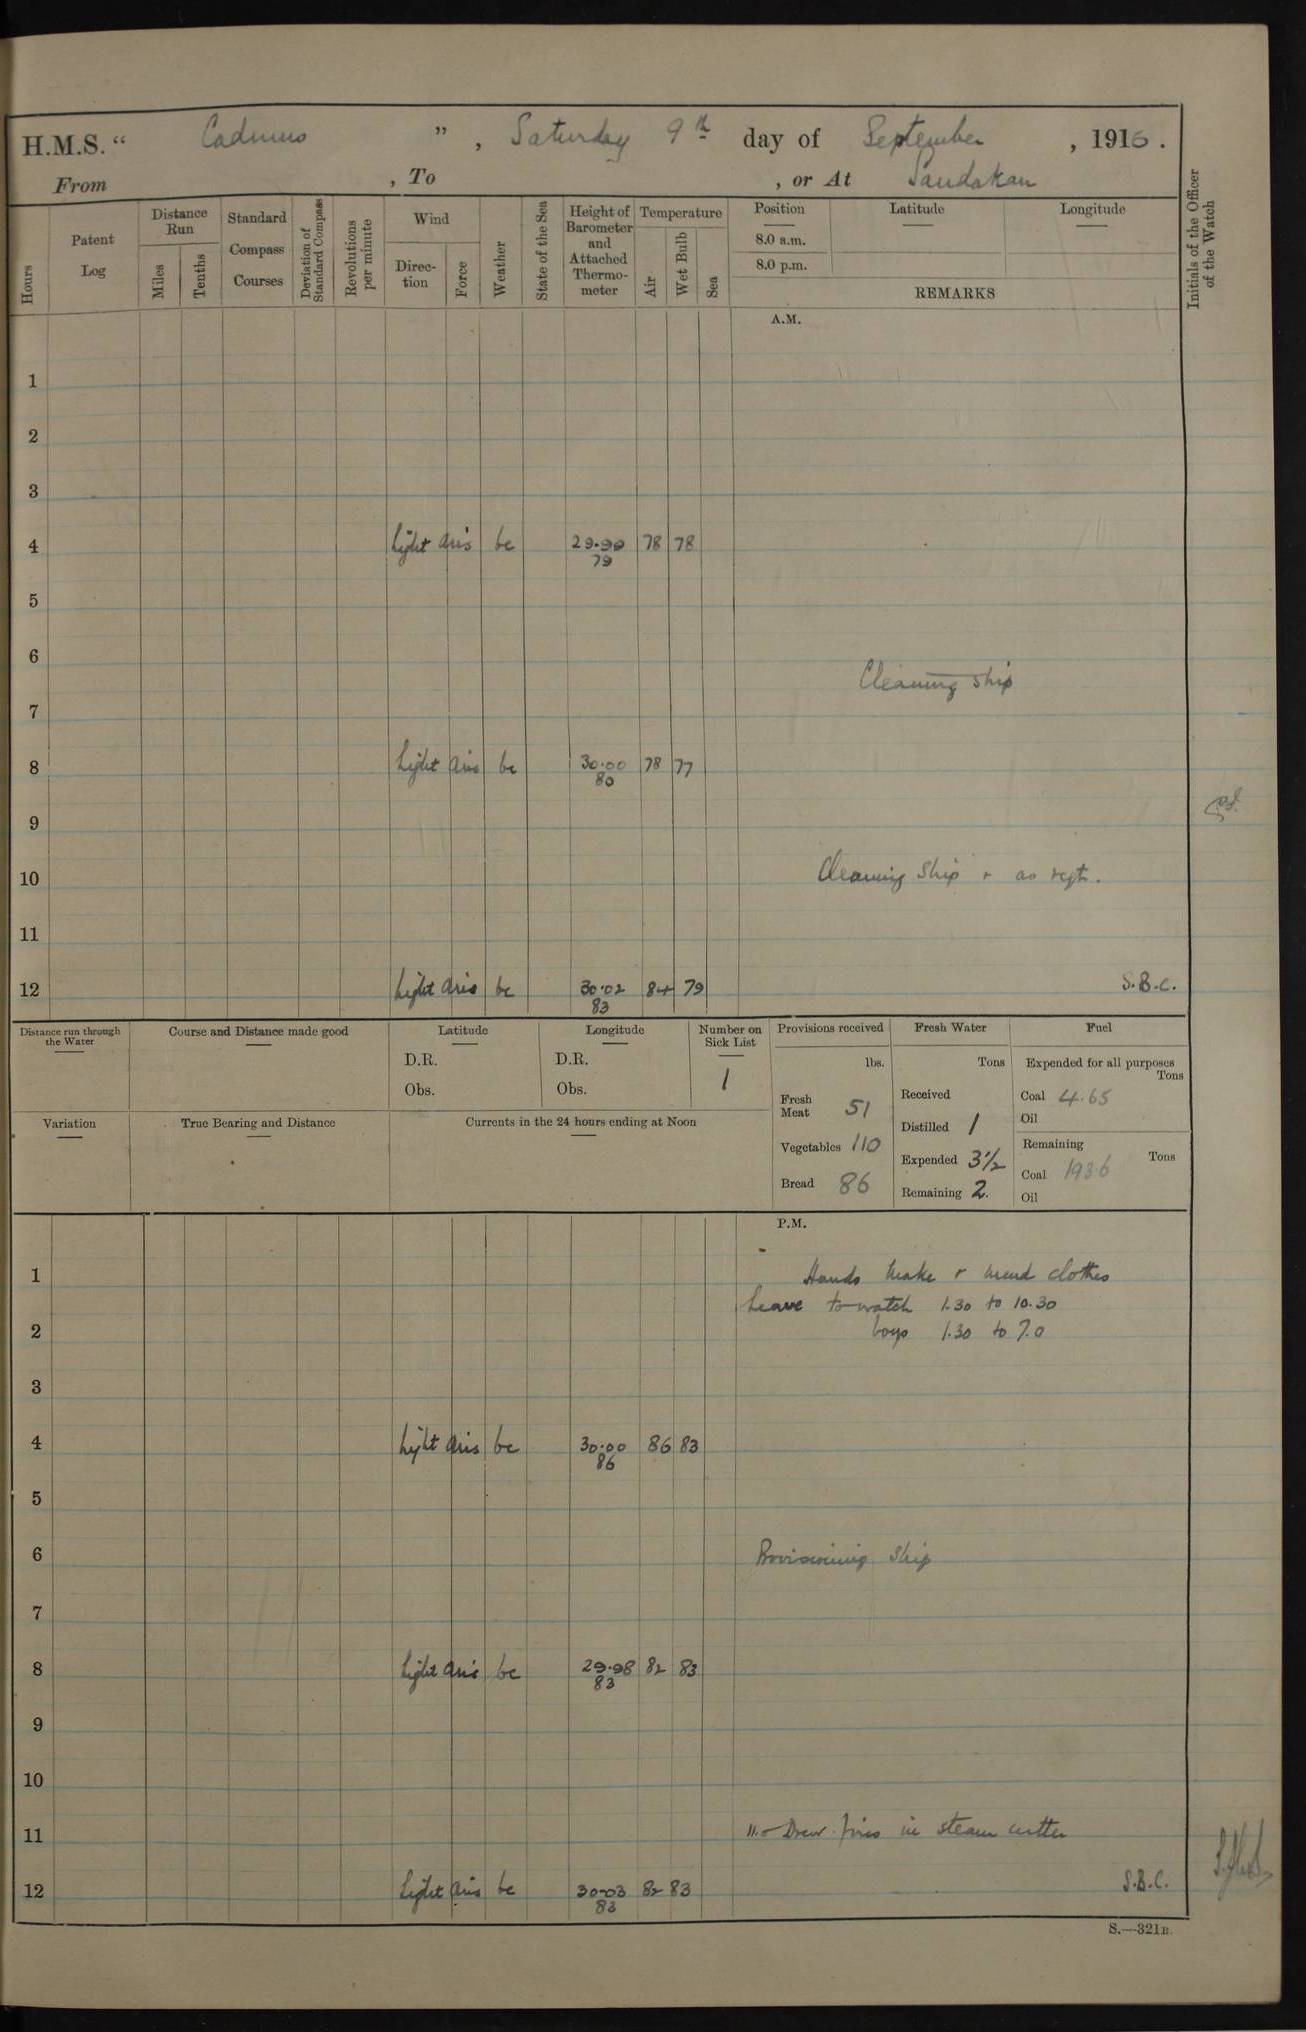 H.M.S. “ Cadmus ”, Saturday 9th day of September, 1916.
From , To , or At Sandakan
Hours
Patent Log
Distance Run
Miles
Tenths
Standard Compass Courses
Deviation of Standard Compass
Revolutions per minute
Wind
Direction
Force
Weather
State of the Sea
Height of Barometer and Attached Thermometer
Temperature
Air
Wet Bulb
Sea
Position
8.0 a.m.
8.0 p.m.
Latitude
Longitude
REMARKS
Initials of the Officer of the Watch
A.M.
1
2
3
4 light airs bc 29.90 78 78
79
5
6
Cleaning ship
7
8 light airs bc 30.00 78 77
80
9
10 Cleaning Ship + as reqt.
11
12 light airs bc 30.02 84 79 S.B.C.
83
Distance run through the Water
Course and Distance made good
Latitude
D.R.
Obs.
Longitude
D.R.
Obs.
Number on Sick List
1
Provisions received
lbs.
Fresh Meat 51
Vegetables 110
Bread 86
Fresh Water
Tons
Received
Distilled 1
Expended 3½
Remaining 2.
Fuel
Expended for all purposes
Tons
Coal 4.65
Oil
Remaining
Tons
Coal 193.6
Oil
Variation
True Bearing and Distance
Currents in the 24 hours ending at Noon
P.M.
1 Hands make + mend clothes
Leave to watch 1.30 to 10.30
2 boys 1.30 to 7.0
3
4 light airs bc 30.00 86 83
86
5
6 Provisioning Ship
7
8 light airs bc 29.98 82 83
83
9
10
11 11.0 Drew fires in steam cutter
12 light airs bc 30.03 82 83 S.B.C.
83
S.—321B.